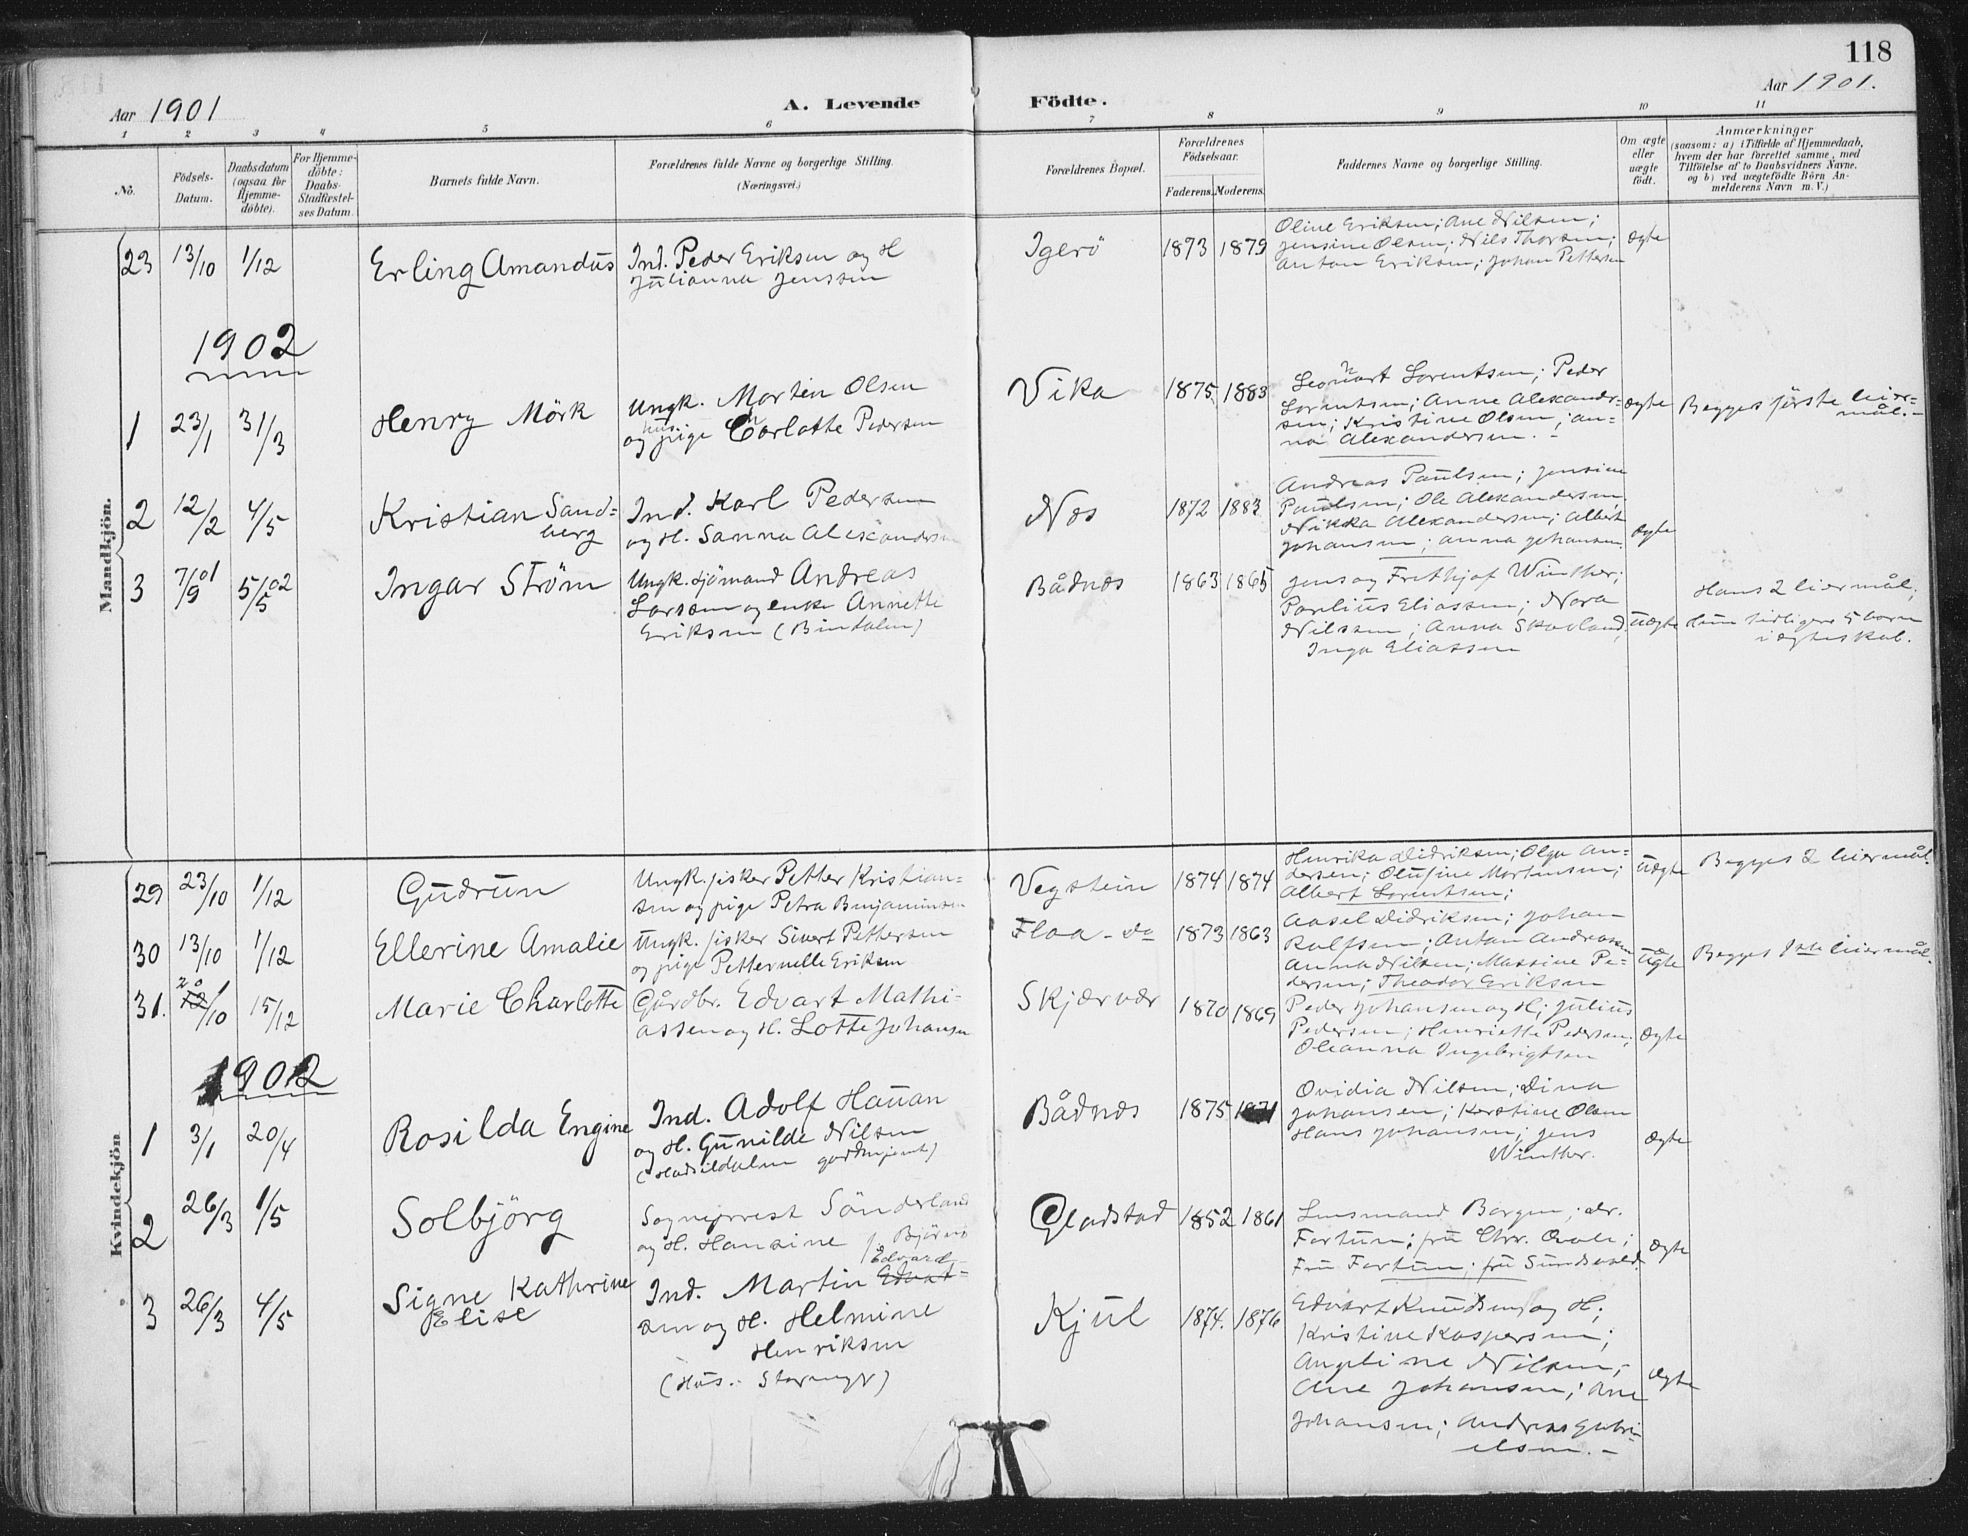 118
Aar 1901
A. Levende
Födte.
Aar 1901.
1 2 3 4 5 6 7 8 9 10 11
No.
Födsels-
Datum.
Daabsdatum
(ogsaa for
Hjemme-
döbte).
For Hjemme-
döbte:
Daabs-
Stadfæstel-
ses Datum.
Barnets fulde Navn.
Forældrenes fulde Navne og borgerlige Stilling.
(Næringsvei.)
Forældrenes Bopæl.
Forældrenes
Födselsaar.
Faderens. Moderens.
Faddernes Navne og borgerlige Stilling.
Om ægte
eller
uægte
födt.
Anmærkninger
(saasom: a) i Tilfælde af Hjemmedaab,
hvem der har forrettet samme, med
Tilföielse af to Daabsvidners Navne.
og b) ved uægtefödte Börn An-
melderens Navn m. V.)
Mandkjön.
23 13/10 1/12 Erling Amandus
Ind. Peder Eriksen og H
Julianna Jenssen
Igerö 1873 1879
Oline Eriksen; Ane Nilsen;
Jensine Olsen; Nils Thorsen;
Anton Eriksen; Johan Pettersen
ægte
1902
1 23/1 31/3 Henry Mörk
Ungk. Morten Olsen
hus
og pige Charlotte Pedersen
Vika 1875 1883
Leonhart Lorentsen; Peder
Lorentsen; Anne Alexander-
sen; Kristine Olsen; An-
na Alexandersen.
ægte
Begges förste leier-
mål.
2 12/2 4/5 Kristian Sand-
berg
Ind. Karl Pedersen
og H. Sanna Alexandersen
Nes 1872 1883
Andreas Paulsen; Jensine
Paulsen; Ole Alexandersen,
Nikka Alexandersen; Albert
Johansen; Anna Johansen.
ægte
3 7/9 01 5/5 02 Ingar Ström
Ungk. sjömand Andreas
Larsen og enke Annette
Eriksen (Bindalen)
Bådnes 1863 1865
Jens og Frithjof Winther;
Paulius Eliassen; Nora
Nilssen; Anna Skavland,
Inga Eliassen
uægte
Hans 2 leiermål;
hun tidligere 5 born
i ægteskab.
Kvindekjön
29 23/10 1/12 Gudrun
Ungk. fisker Petter Kristian-
sen og pige Petra Benjaminsen
Vegstein 1874 1874
Henrika Didriksen; Olga An-
dersen; Olufine Mortensen;
Albert Lorentsen;
uægte
Begges 2 leiermål.
30 13/10 1/12 Ellerine Amalie
Ungk. fisker Sivert Pettersen
og pige Petternelle Eriksen
Floa - do 1873 1863
Aasel Didriksen; Johan
Rolfsen; Anton Andreassen
Anna Nilsen; Massine Pe-
dersen; Theodor Eriksen
uægte
Begges 1ste leiermål.
31. 20/10 15/12 Marie Charlotte
Gårdbr. Edvart Mathi-
assen og H. Lotte Johansen
Skjærvær 1870 1869
Peder Johansen og H; Julius
Pedersen; Henriette Pedersen;
Oleanna Ingebrigtsen
ægte
1902
1 3/1 20/4 Rosilda Engine
Ind. Adolf Hauan
og H. Gunilde Nilsen
Bådnes 1875 1871
Ovidia Nilsen; Dina
Johansen; Kerstine Olsen
Hans Johansen; Jens
Winther.
ægte
2 26/3 1/5 Solbjörg
Sogneprest Sönderland
og H. Hansine f. Björnö
Gladstad 1852 1861
Lensmand Borgen; dr.
Fortun; fru Chr. Qvale;
Fru Fortun; fru Sundsvold
ægte
3 26/3 4/5 Signe Kathrine
Elise
Edvard
Ind. Martin Edvat-
sen og H. Helmine
Henriksen
(Hus. Stormyr)
Kjul 1874. 1876
Edvart Knudsen og H;
Kristine Kaspersen;
Angeline Nilsen;
Ane Johansen; Ane
Johansen; Andreas Gabri-
elsen.
ægte